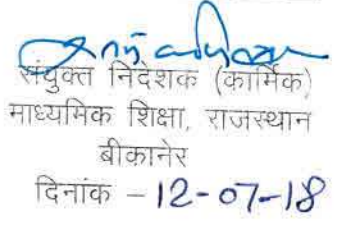 संयुक्त निदेशक (कार्मिक)
माध्यमिक शिक्षा, राजस्थान
बीकानेर
दिनांक – 12-07-18